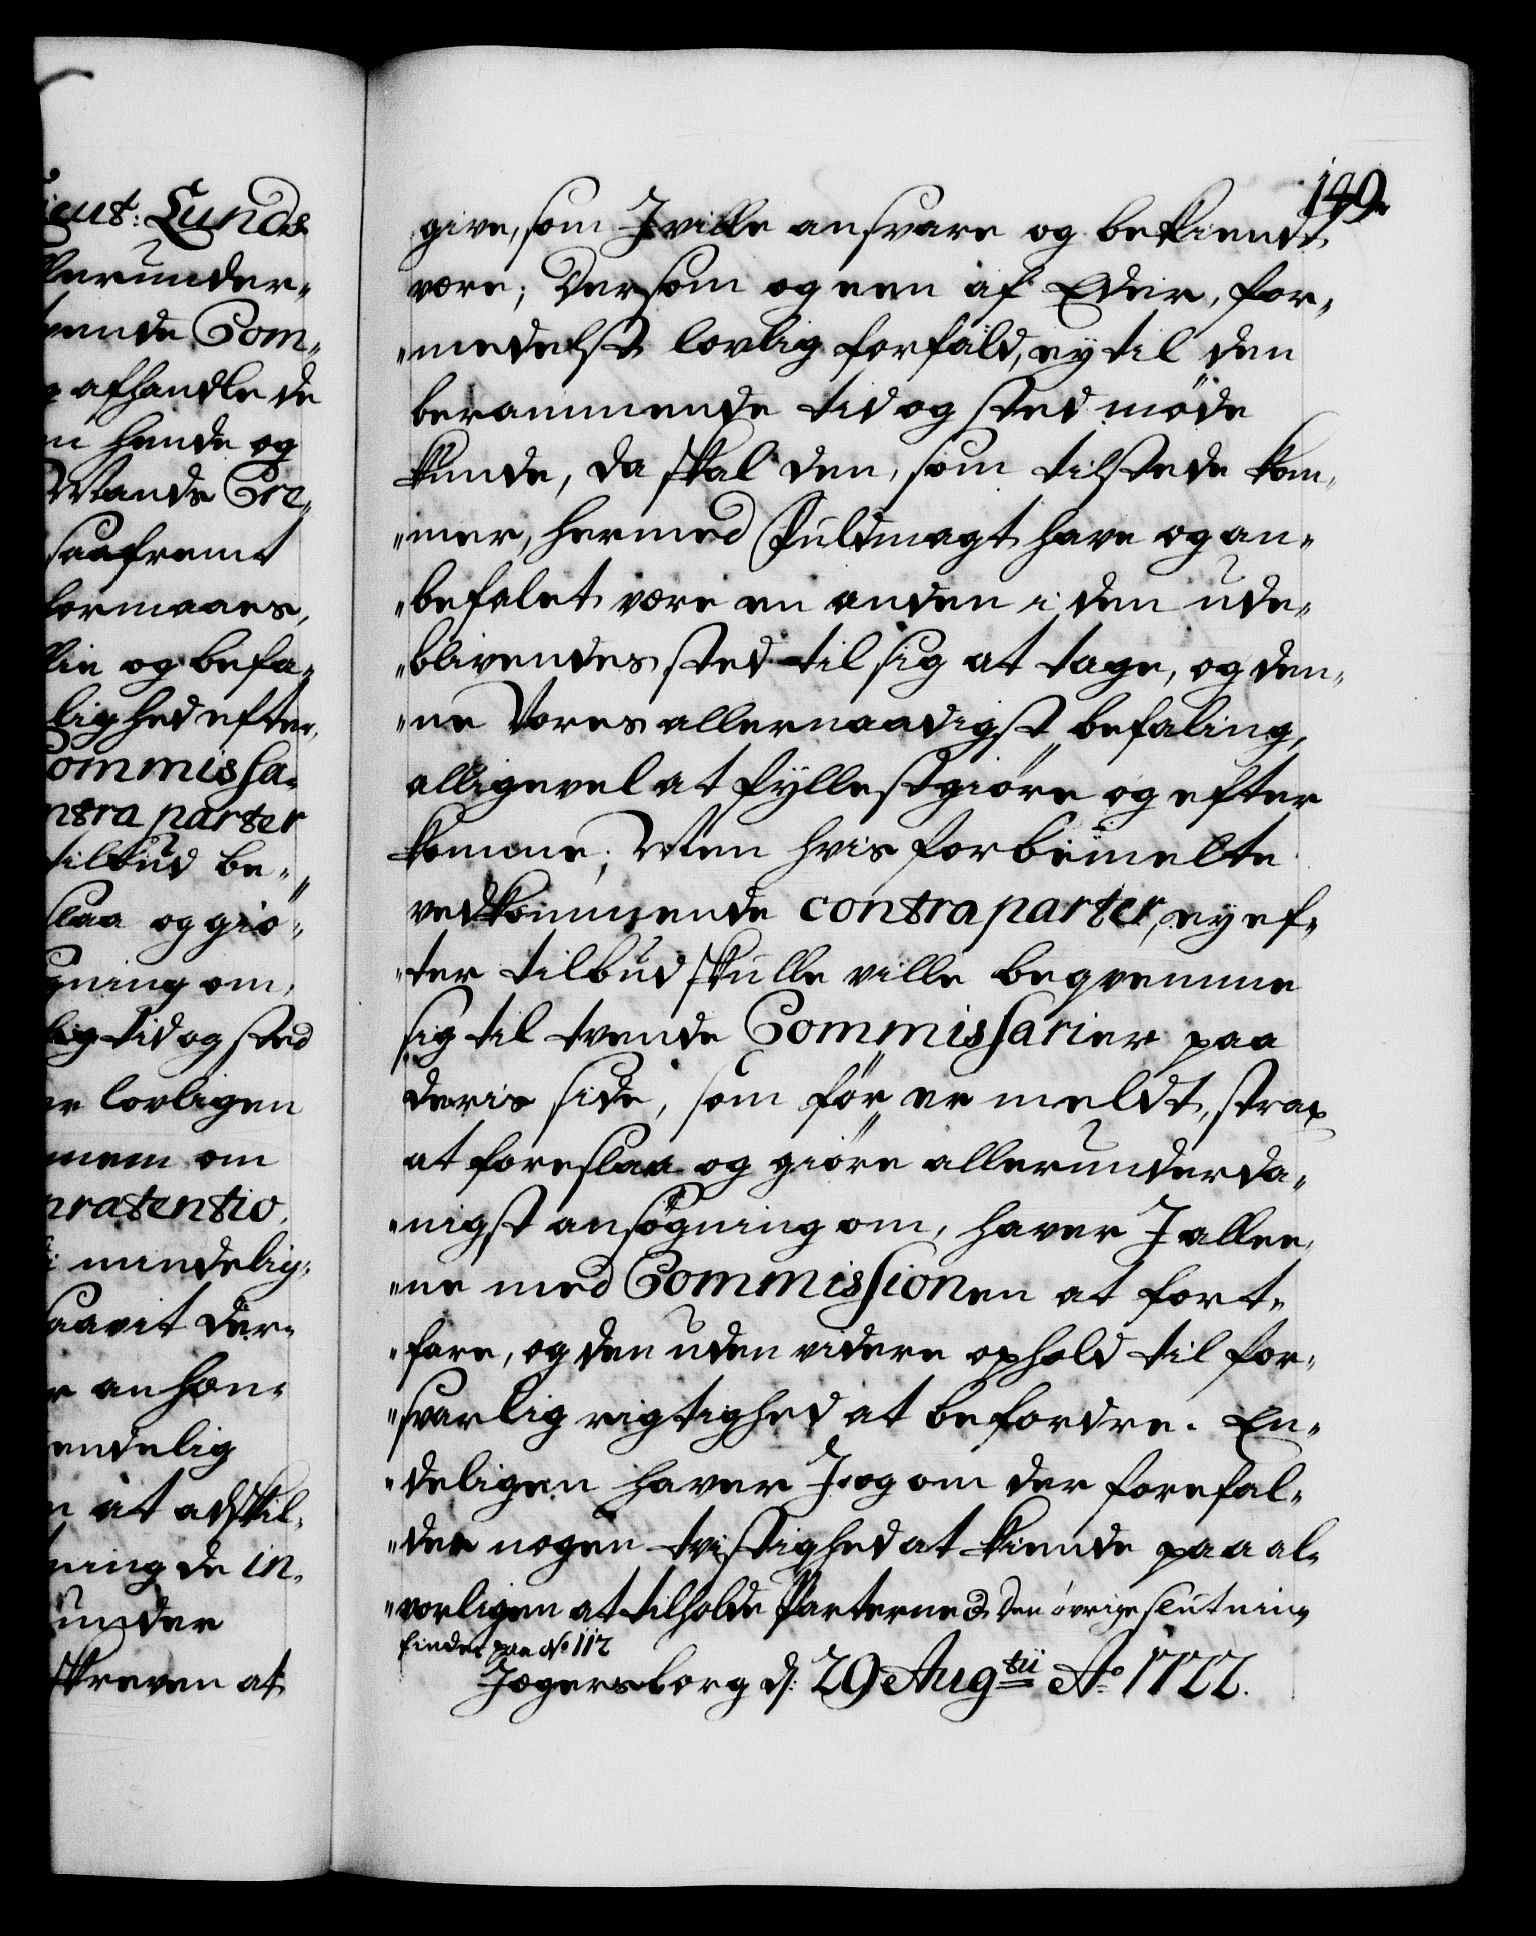 ieut: Lunds
lerunder„
vende Com„
afhandle de
n hende og
Mands Cre„
saafremt
formaaes,
lie og befa„
lighed efter,
ommissa„
ntra parter
tilbud be„
slaa og giö„
gning om,
lig tid og sted
er lovligen
mem om
prætentio,
i mindelig„
saavit der„
r anhæn„
endelig
n at adskil„
ning de in„
under
skreven at
149.
give, som J ville ansvare og bekiendt
være; Dersom og een af Eder, for„
„medelst lovlig forfald, ey til den
berammende tid og sted möde
kunde, da skal den, som tilstede kom„
„mer, hermed Fuldmagt have og an„
„befalet være en anden i den ude„
„blivendes sted til sig at tage, og den„
„ne Vores allernaadigst befaling,
alligevel at fyllestgiöre og efter
komme; Men hvis forbemelte
vedkommende contraparter, ey ef„
„ter tilbud skulle ville beqvemme
sig til tvende Commissarier paa
deris side, som för er meldt, strax
at foreslaa og giöre allerunderda„
„nigst ansögning om, haver J allee„
„ne med Commissionen at fort„
„fare, og den uden videre ophold til for„
„svarlig rigtighed at befordre. En„
„deligen haver J og om der forefal„
„der nogen tvistighed at kiende paa al„
„vorligen at tilholde Parterne &c den övrige slutning
findes paa No 112
Jægersborg d: 29 Augtii Ao 1722.